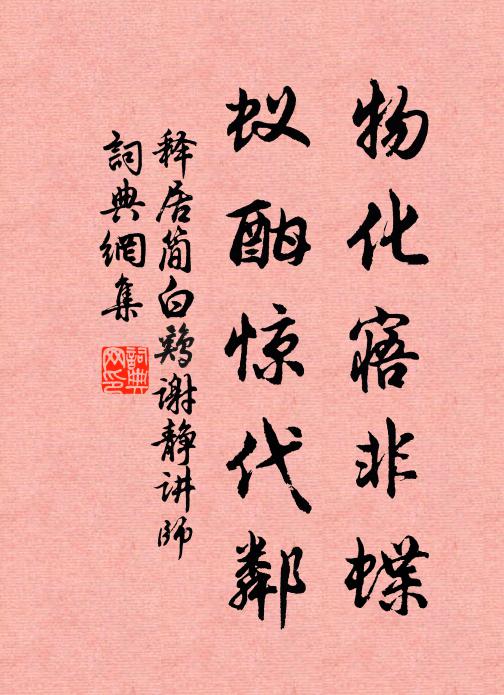 物化寤非蝶
蚁酣惊代鄰
释居简白鸡谢静讲师
詞典網集
詞典網印